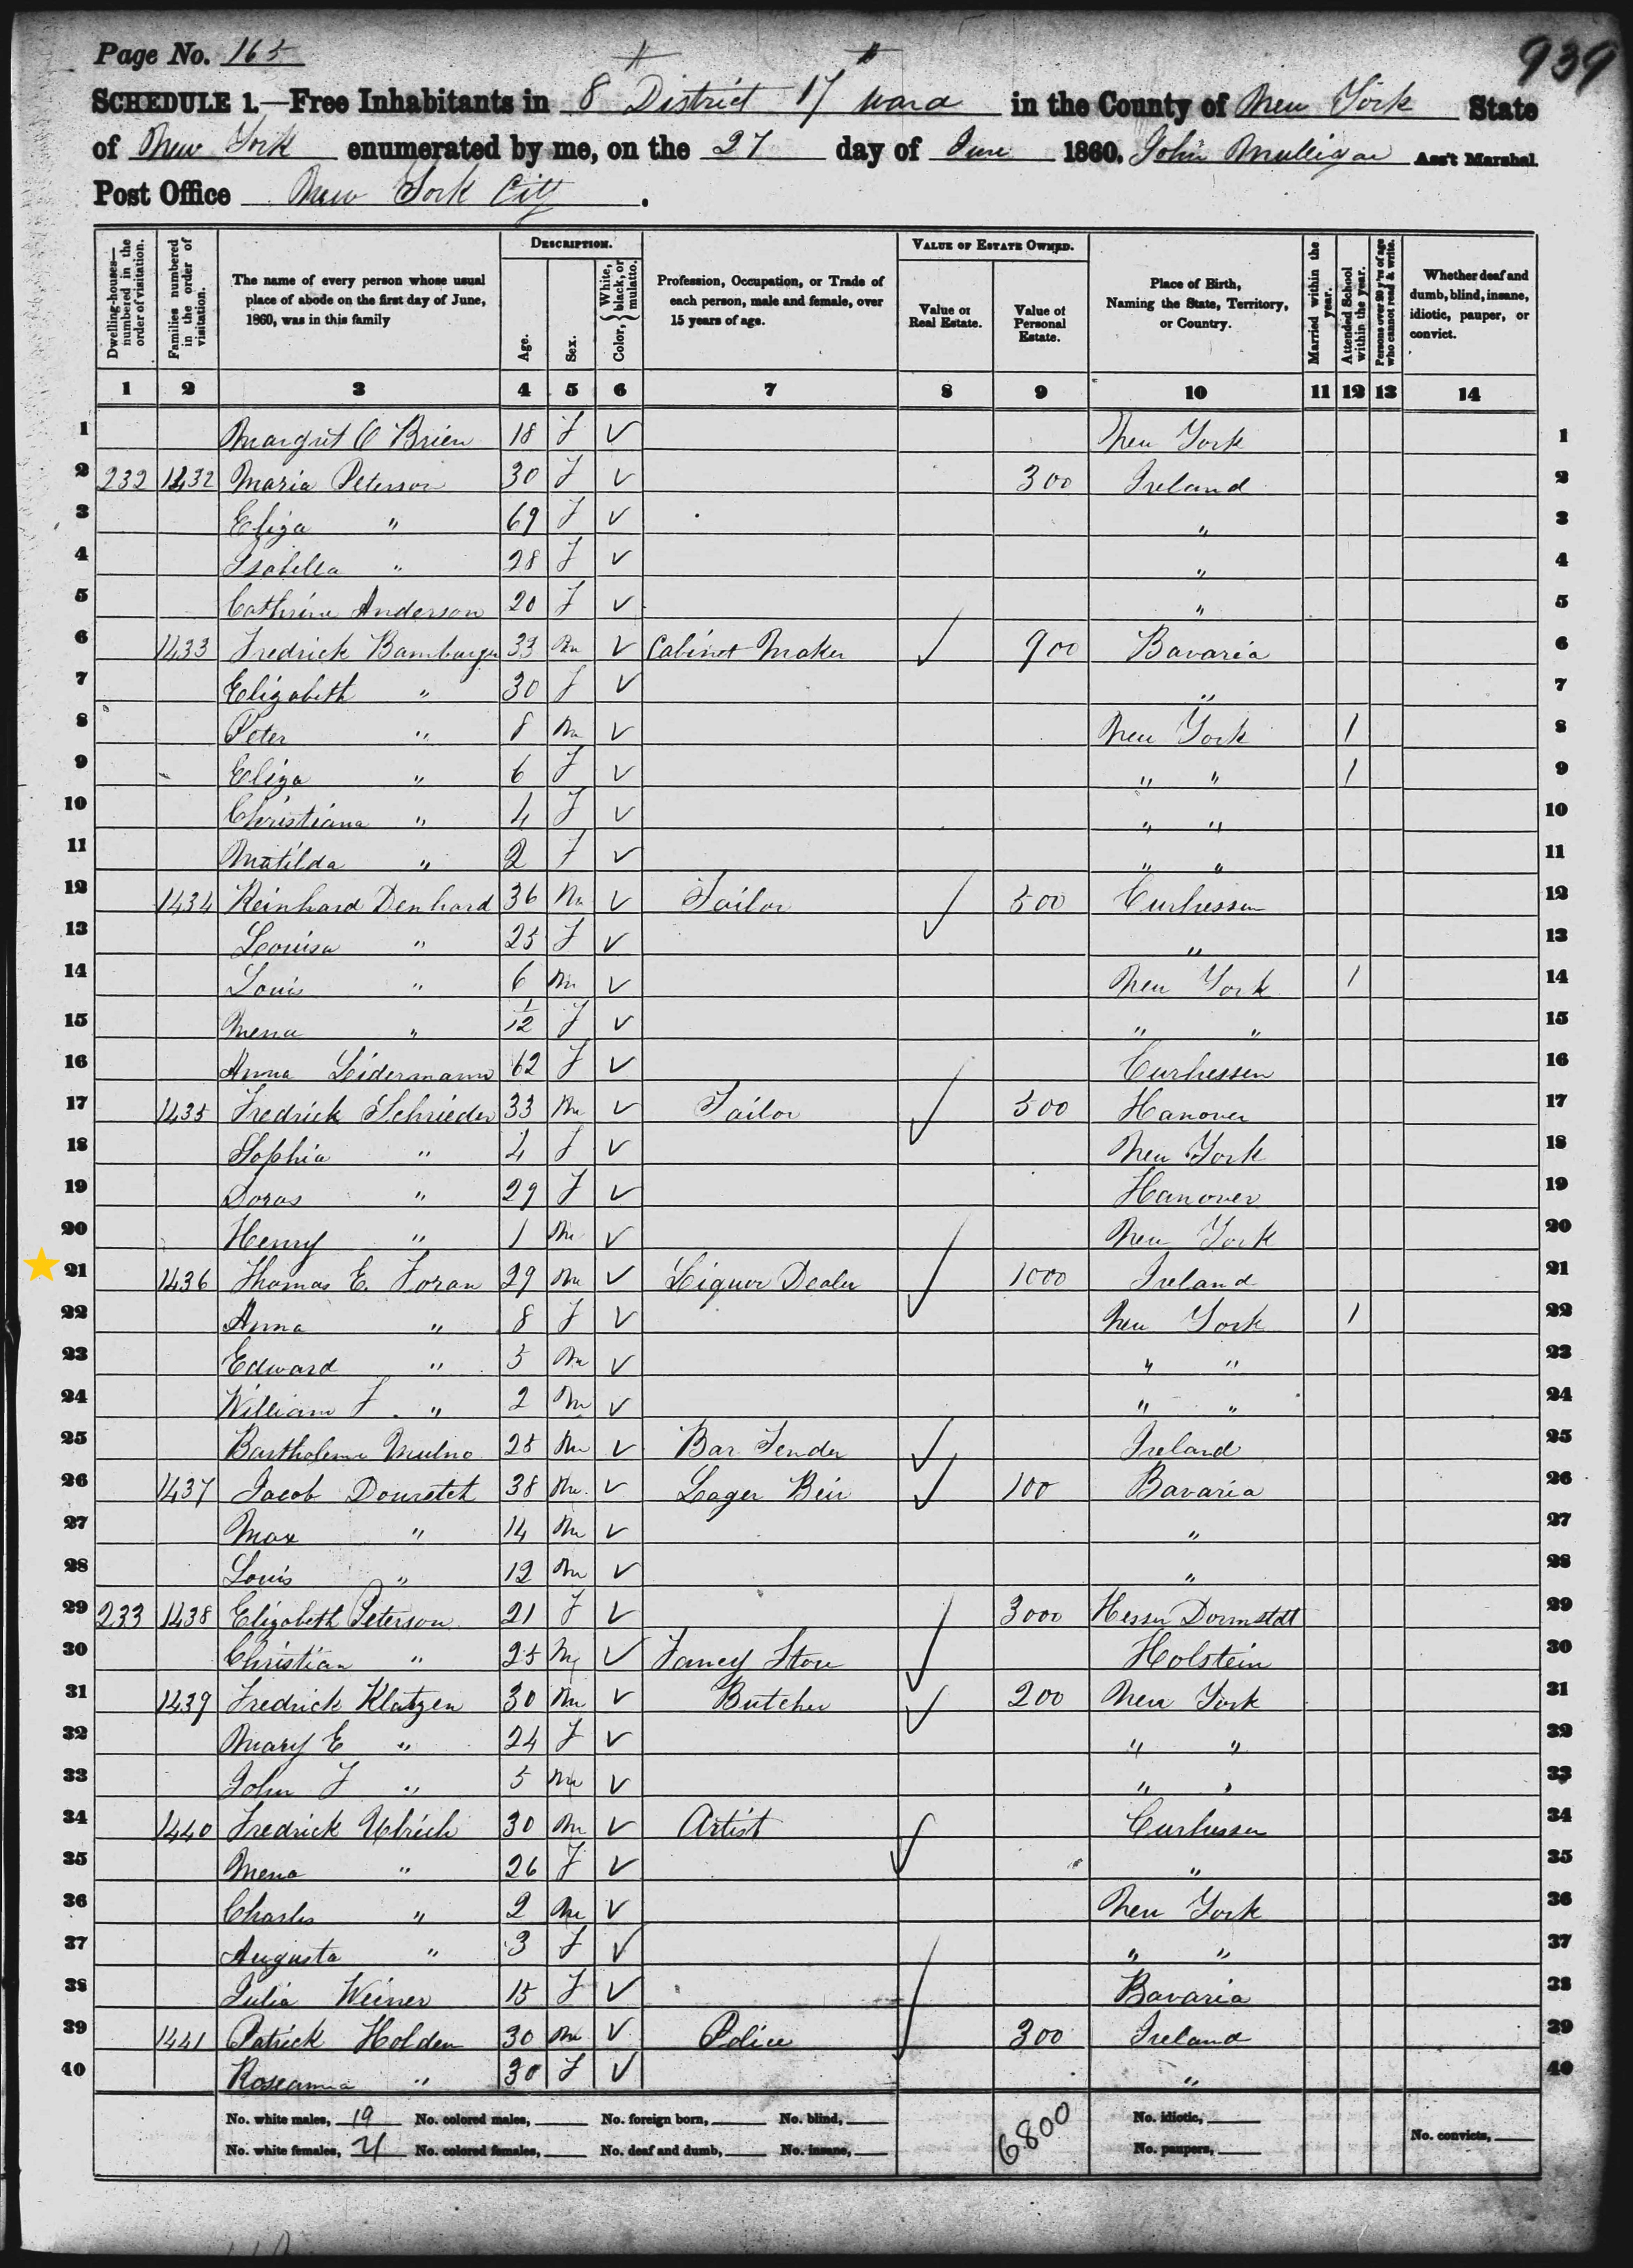 939
Page No. 165
SCHEDULE 1.—Free Inhabitants in 8 District 17 Ward in the County of New York State
of New York enumerated by me, on the 27 day of June 1860. John Mulligan Ass't Marshal.
Post Office New York City.
Dwelling-houses—numbered in the order of visitation.
Families numbered in the order of visitation.
The name of every person whose usual place of abode on the first day of June, 1860, was in this family
DESCRIPTION.
Age.
Sex.
Color, { White, black, or mulatto.
Profession, Occupation, or Trade of each person, male and female, over 15 years of age.
VALUE OF ESTATE OWNED.
Value of Real Estate.
Value of Personal Estate.
Place of Birth, Naming the State, Territory, or Country.
Married within the year.
Attended School within the year.
Persons over 20 y'rs of age who cannot read & write.
Whether deaf and dumb, blind, insane, idiotic, pauper, or convict.
1 2 3 4 5 6 7 8 9 10 11 12 13 14
1 Margrit O Brien 18 F ✓ New York 1
2 232 1432 Maria Peterson 30 F ✓ 300 Ireland 2
3 Eliza " 69 F ✓ " 3
4 Isabella " 28 F ✓ " 4
5 Cathrine Anderson 20 F ✓ " 5
6 1433 Fredrick Bamburger 33 M ✓ Cabinet Maker ✓ 900 Bavaria 6
7 Elizabeth " 30 F ✓ " 7
8 Peter " 8 M ✓ New York 1 8
9 Eliza " 6 F ✓ " " 1 9
10 Christiana " 4 F ✓ " " 10
11 Matilda " 2 F ✓ " " 11
12 1434 Reinhard Denhard 36 M ✓ Tailor ✓ 500 Curhessen 12
13 Louisa " 25 F ✓ " 13
14 Louis " 6 M ✓ New York 1 14
15 Mena " 1/12 F ✓ " " 15
16 Anna Leidermann 62 F ✓ Curhessen 16
17 1435 Fredrick Schrieder 33 M ✓ Tailor ✓ 500 Hanover 17
18 Sophia " 4 F ✓ New York 18
19 Doras " 29 F ✓ Hanover 19
20 Henry " 1 M ✓ New York 20
21 1436 Thomas E. Foran 29 M ✓ Liquor Dealer ✓ 1000 Ireland 21
22 Anna " 8 F ✓ New York 1 22
23 Edward " 5 M ✓ " " 23
24 William F. " 2 M ✓ " " 24
25 Bartholeme 25 M ✓ Bar Tender ✓ Ireland 25
26 1437 Jacob 38 M ✓ Lager Beir ✓ 100 Bavaria 26
27 Max " 14 M ✓ " 27
28 Louis " 12 M ✓ " 28
29 233 1438 Elizabeth Peterson 21 F ✓ 3000 Hessen Darmstdt 29
30 Christian " 25 M ✓ Fancy Store ✓ Holstein 30
31 1439 Fredrick Klatzen 30 M ✓ Butcher ✓ 200 New York 31
32 Mary E " 24 F ✓ " " 32
33 John F " 5 M ✓ " " 33
34 1440 Fredrick Ulrich 30 M ✓ Artist ✓ Curhessen 34
35 Mena " 26 F ✓ " 35
36 Charles " 2 M ✓ New York 36
37 Augusta " 3 F ✓ " " 37
38 Julia Weiner 15 F ✓ Bavaria 38
39 1441 Patrick Holden 30 M ✓ Police ✓ 300 Ireland 39
40 Roseanna " 30 F ✓ " 40
No. white males, 19 No. colored males, No. foreign born, No. blind, 6800 No. idiotic,
No. white females, 21 No. colored females, No. deaf and dumb, No. insane, No. paupers, No. convicts,